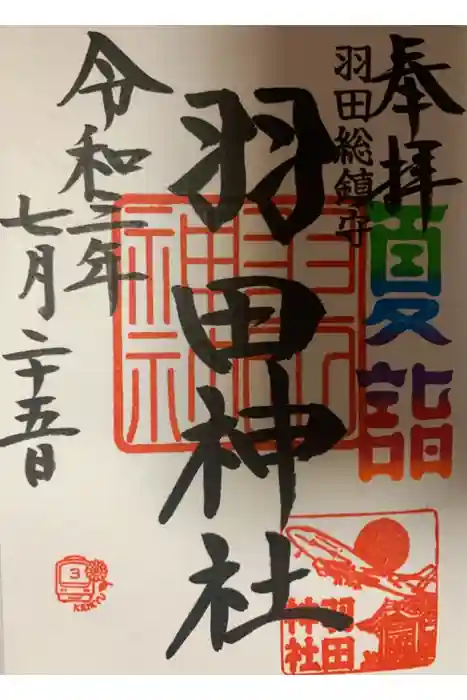 奉拝
夏詣
羽田総鎮守
羽田神社
令和三年
七月二十五日
羽田
神社
羽田
神社
3
KEIKYU